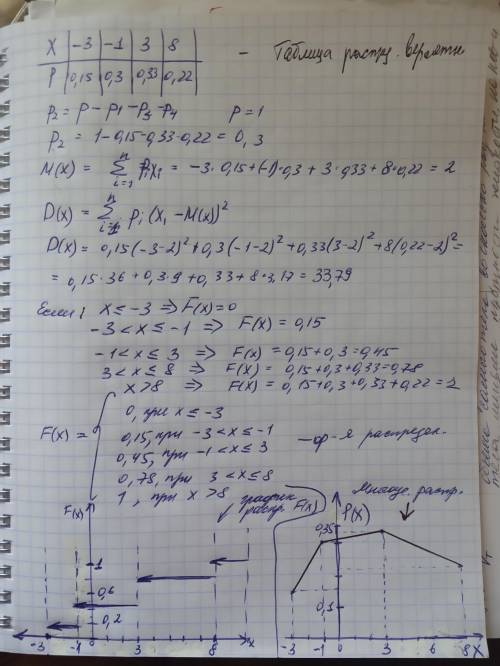 X | -3 | -1 | 3 | 8 | - Таблица распр. вероятн
P | 0,15 | 0,3 | 0,33 | 0,22
P2 = P - P1 - P3 - P4 P = 1
P2 = 1-0,15-0,33-0,22 = 0,3
M(x) = n Σ i=1 PiXi = -3·0,15+(-1)·0,3+3·0,33+8·0,22 = 2
D(x) = n Σ i=1 Pi (Xi - M(x))²
D(x) = 0,15(-3-2)²+0,3(-1-2)²+0,33(3-2)²+8(0,22-2)²=
= 0,15·36+0,3·9+0,33+8·3,17 = 33,79
Если: x ≤ -3 ⇒ F(x)=0
-3 < x ≤ -1 ⇒ F(x) = 0,15
-1 < x ≤ 3 ⇒ F(x) = 0,15+0,3=0,45
3 < x ≤ 8 ⇒ F(x) = 0,15+0,3+0,33=0,78
x > 8 ⇒ F(x) = 0,15+0,3+0,33+0,22=1
F(x) = {
0, при x ≤ -3
0,15, при -3 < x ≤ -1
0,45, при -1 < x ≤ 3
0,78, при 3 < x ≤ 8
1, при x > 8
-ф-я распредел.
график
распр. F(x)
F(x)
1
0,6
0,2
-3 -1 0 3 8 x
Многоуг. распр.
P(X)
0,35
0,1
-3 -1 0 3 6 8 X